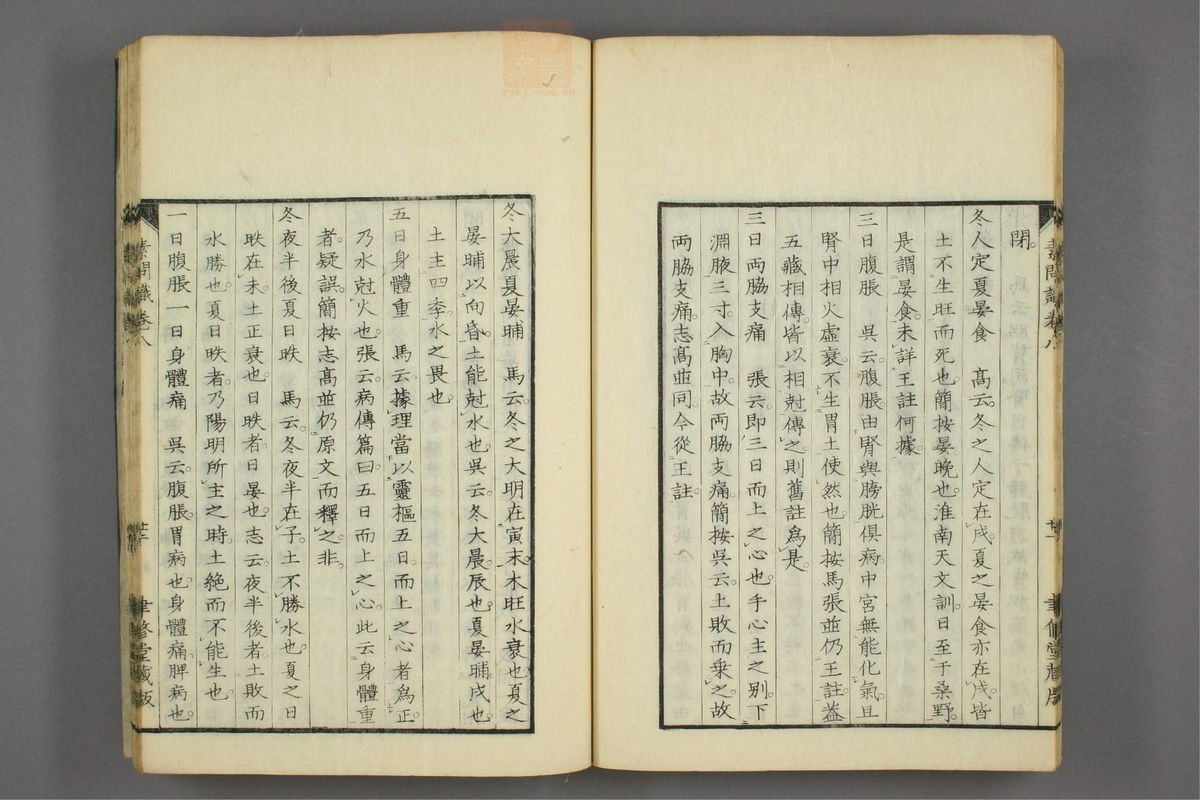 閉。
冬人定夏晏食　高云。冬之人定在戌。夏之晏食亦在戌。皆
土不生旺而死也。簡按晏晚也。淮南天文訓。日至于桑野。
是謂晏食。未詳王註何據。
三日腹脹　吳云。腹脹。由腎與膀胱俱病。中宮無能化氣。且
腎中相火虛衰。不生胃土使然也。簡按馬張並仍王註。蓋
五藏相傳。皆以相尅傳之。則舊註爲是。
三日兩脇支痛　張云。即三日而上之心也。手心主之別。下
淵腋三寸。入胸中。故兩脇支痛。簡按吳云。土敗而乘之。故
兩脇支痛。志高並同。今從王註。
素問識卷八
廿一
聿修堂藏版
冬大晨夏晏晡　馬云。冬之大明在寅末。木旺水衰也。夏之
晏晡以向昏。土能尅水也。吳云。冬大晨。辰也。夏晏晡。戌也。
土主四季。水之畏也。
五日身體重　馬云。據理當以靈樞五日而上之心者爲正。
乃水尅火也。張云。病傳篇曰。五日而上之心。此云身體重
者。疑誤。簡按志高並仍原文而釋之。非。
冬夜半後夏日昳　馬云。冬夜半在子。土不勝水也。夏之日
昳在未。土正衰也。日昳者。日晏也。志云。夜半後者。土敗而
水勝也。夏日昳者。乃陽明所主之時。土絶而不能生也。
一日腹脹一日身體痛　吳云。腹脹。胃病也。身體痛。脾病也。
素問識卷八
廿二
聿修堂藏版
zysj.com.cn